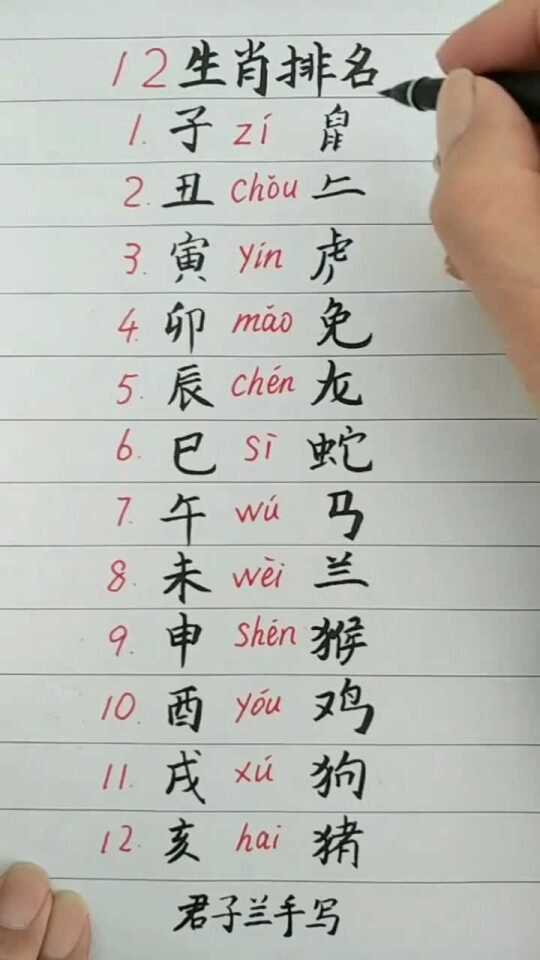 12生肖排名
1. 子 zí 鼠
2. 丑 chǒu
3. 寅 yín 虎
4. 卯 mǎo 免
5. 辰 chén 龙
6. 巳 sì 蛇
7. 午 wú 马
8. 未 wèi 兰
9. 申 shén 猴
10. 酉 yóu 鸡
11. 戌 xú 狗
12. 亥 hai 猪
君子兰手写